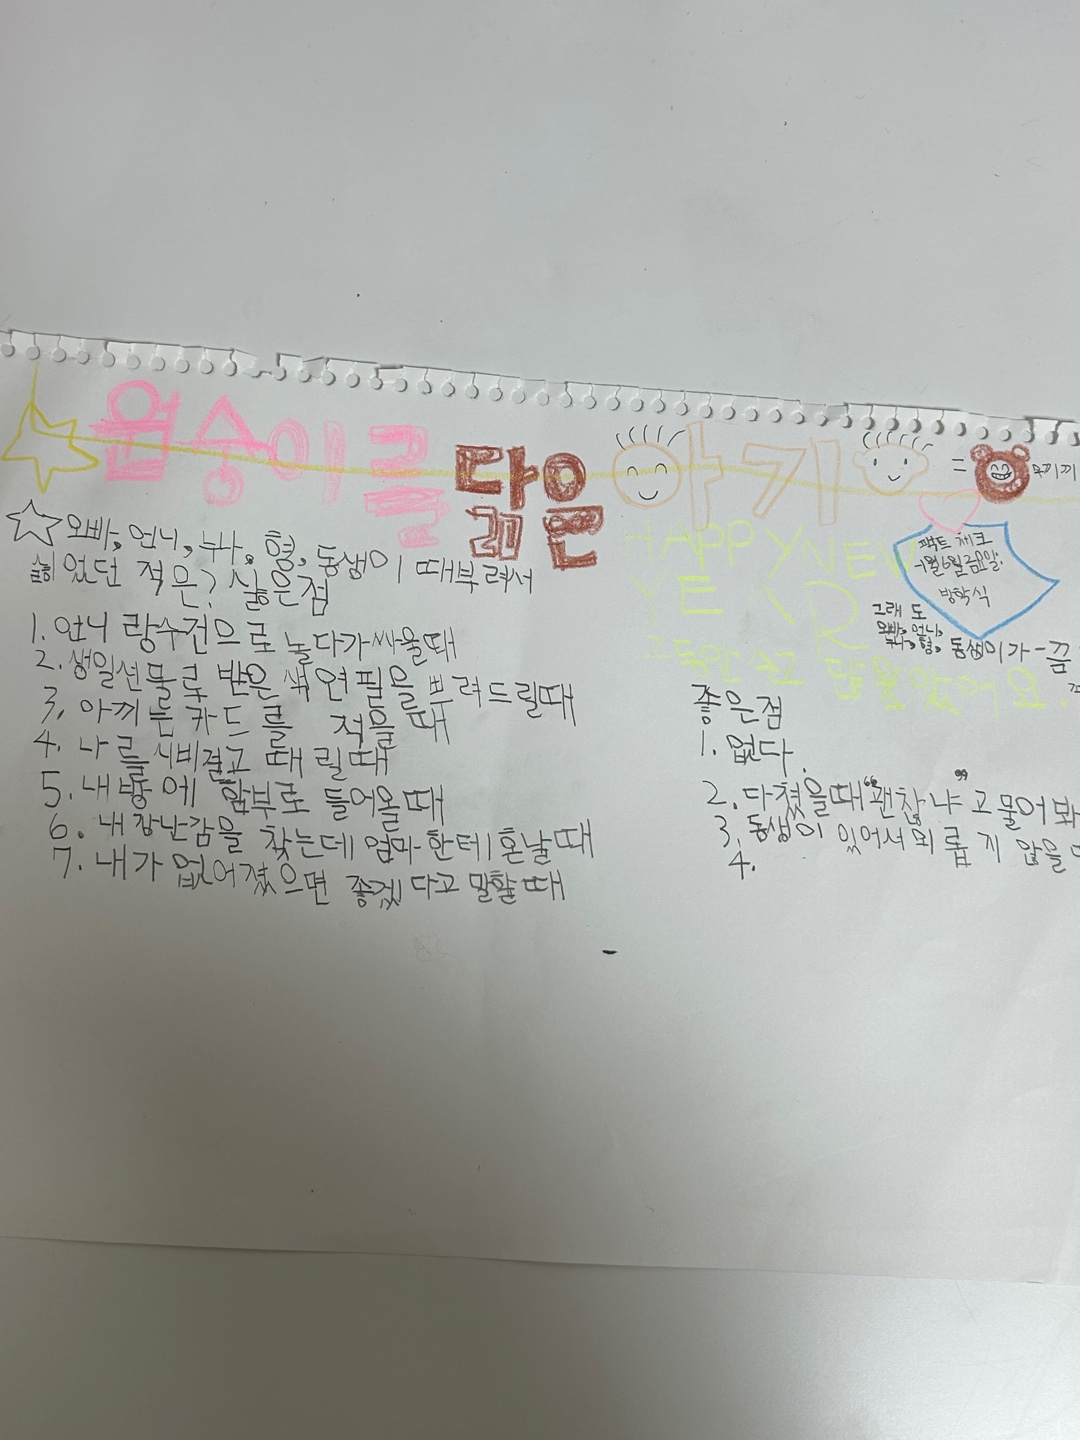 원숭이를 닮은 아기 = 우끼끼
☆오빠, 언니, 누나, 형, 동생이 때부려서
싫었던 적은? 싫은점
1. 언니랑수건으로 놀다가싸울때
2. 생일선물로 받은 색연필을 뿌려드릴때
3. 아끼는 카드를 적을때
4. 나를시비걸고 때릴때
5. 내방에 함부로 들어올때
6. 내장난감을 찾는데 엄마한테 혼날때
7. 내가 없어졌으면 좋겠다고 말할때
HAPPY NEW
YEAR
팩트 체크
1월6일금요일
방학식
그래도
오빠, 언니,
누나, 형, 동생이가-끔
좋은점
1. 없다.
2. 다쳤을때"괜찮냐"고물어봐
3. 동생이 있어서외롭지 않을
4.